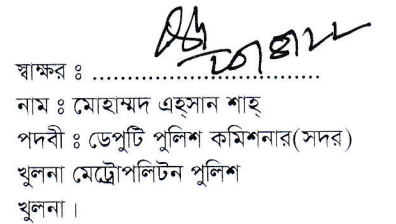 স্বাক্ষর ঃ ......................................
নাম ঃ মোহাম্মদ এহ্সান শাহ্
পদবী ঃ ডেপুটি পুলিশ কমিশনার(সদর)
খুলনা মেট্রোপলিটন পুলিশ
খুলনা।